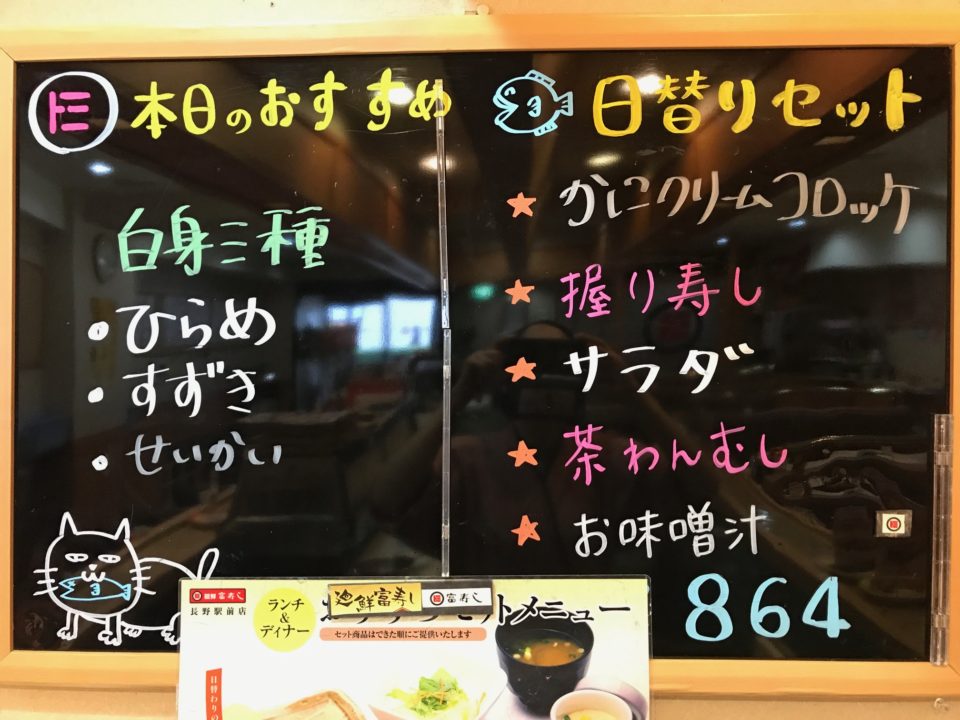 トミ 本日のおすすめ
白身三種
・ひらめ
・すずき
・せいかい
日替りセット
★ かにクリームコロッケ
★ 握り寿し
★ サラダ
★ 茶わんむし
★ お味噌汁
864
廻鮮富寿し
長野駅前店
ランチ
&
ディナー
廻鮮富寿し 富寿し
セットメニュー
セット商品はできた順にご提供いたします
日替わりの